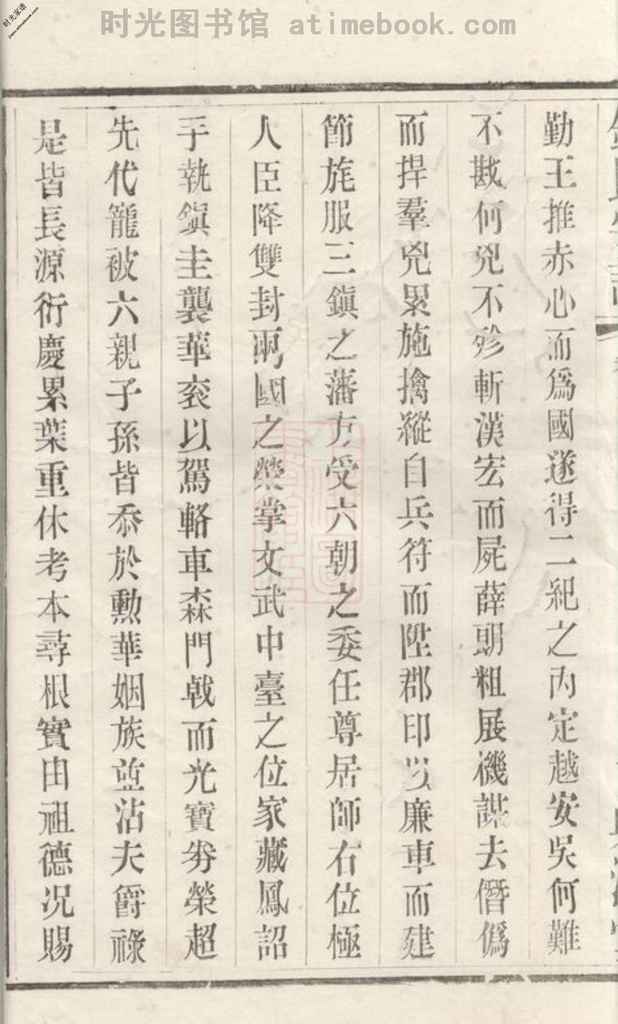 时光图书馆 atimebook.com
勤王推赤心而爲國遂得二紀之內定越安吳何難
不戡何兇不殄斬漢宏而屍薛朗粗展機謀去僭僞
而捍羣兇累施擒縱自兵符而陞郡印以廉車而建
節旄服三鎭之藩方受六朝之委任尊居師右位極
人臣降雙封兩國之榮掌文武中臺之位家藏鳳詔
手執鎭圭襲華衮以駕輅車森門戟而光寶券榮超
先代寵被六親子孫皆忝於勲華姻族並沾夫爵祿
是皆長源衍慶累葉重休考本尋根實由祖德况賜